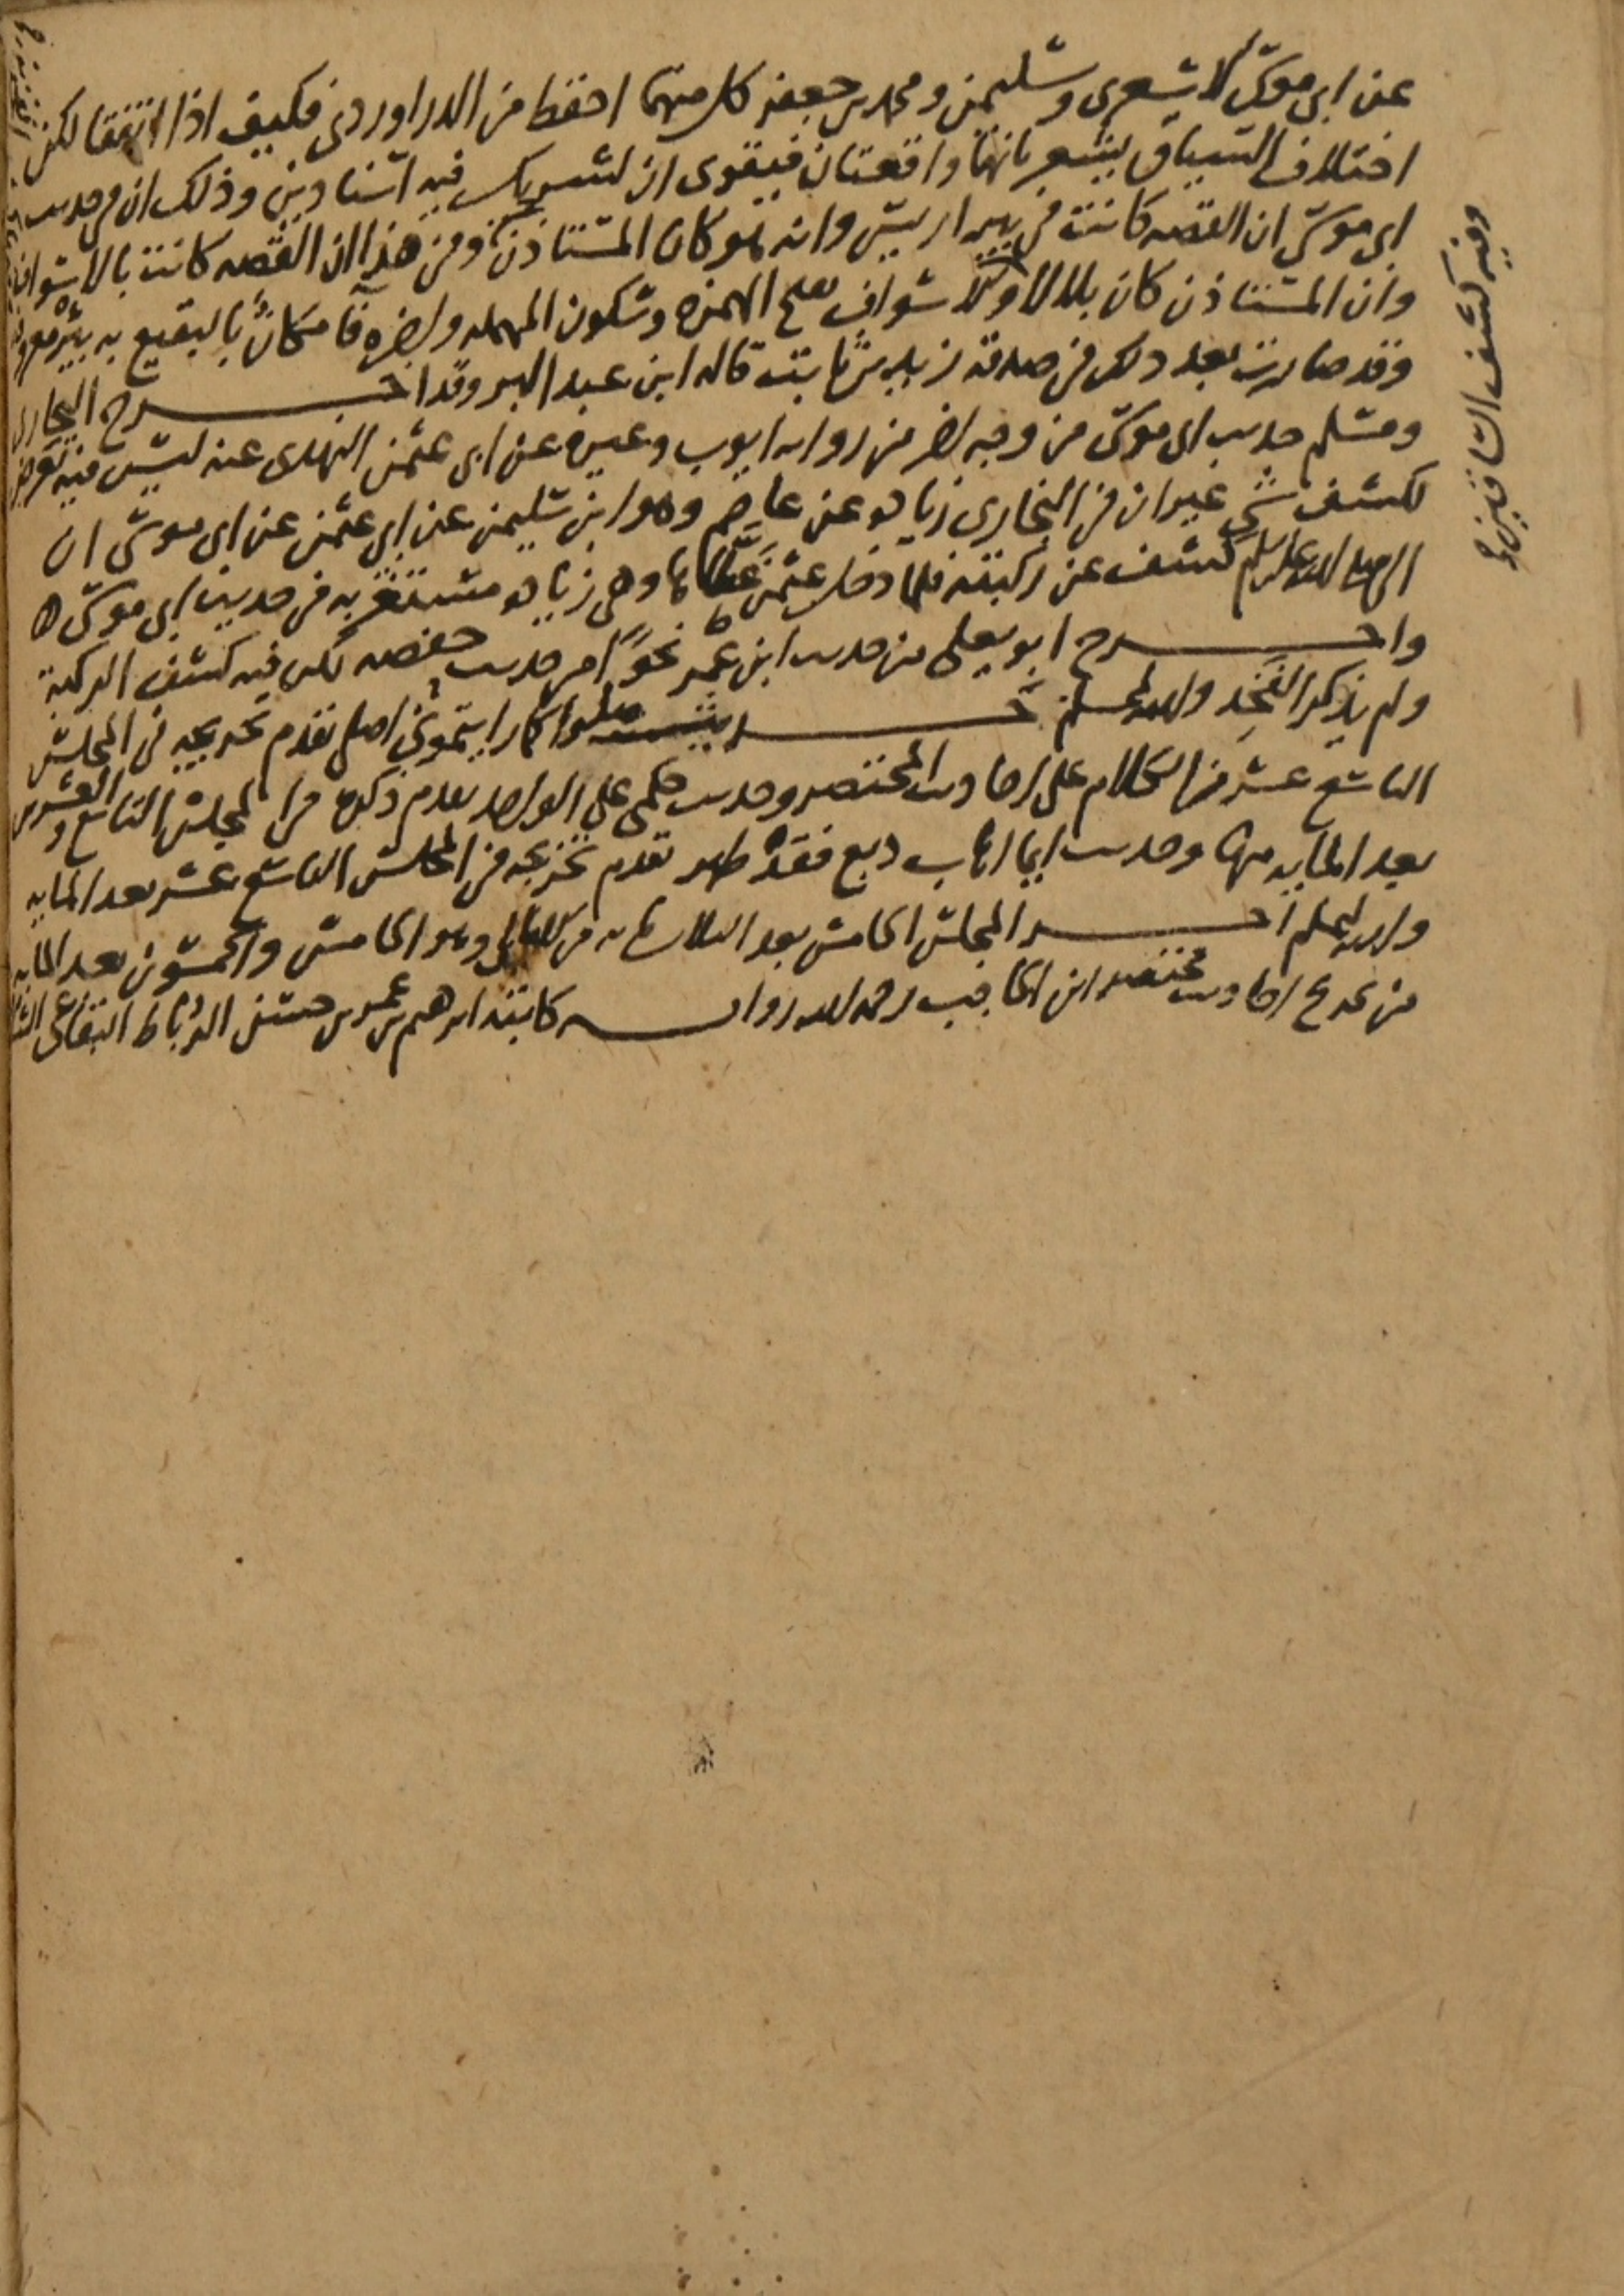 عن ابي موسى الاشعري وسليمن ومحمد بن جعفر كل منهما احفظ من الدراوردي فكيف اذا اتفقا لكن
اختلاف السياق يشعر بانهما واقعتان فيقوى ان لشريك فيه اسنادين وذلك ان في حديث
ابي موسى ان القصه كانت في بير اريس وانه هو كان المستاذن وفي هذا ان القصه كانت بالاسواف
وان المستاذن كان بلالا والاسواف بفتح الهمزه وسكون المهمله واخره فا مكان بالبقيع به بئر معروفة
وقد صارت بعد ذلك في صدقة زيد بن ثابت قاله ابن عبد البر وقد اخرج البخاري
ومسلم حديث ابي موسى من وجه اخر من رواية ايوب وغيره عن ابي عثمن النهدي عنه ليس فيه تعرض
لكشف شي غير ان في البخاري زياده عن عاصم وهو ابن سليمن عن ابي عثمن عن ابي موسى ان
النبي صلى الله عليه وسلم كشف عن ركبته فلما دخل عثمن غطاها وهي زياده مستغربه في حديث ابي موسى ه
واخرج ابو يعلى من حديث ابن عمر نحوا من حديث حفصه لكن فيه كشف الركبة
ولم يذكر الفخذ والله المستعان حديث صلوا كما رايتموني اصلي تقدم تخريجه في المجلس
التاسع عشر من الكلام على احاديث المختصر وحديث حكمي على الواحد تقدم ذكره في المجلس التاسع والعشرين
بعد المايه منها وحديث ايما اهاب دبغ فقد طهر تقدم تخريجه في المجلس التاسع عشر بعد المايه
والله اعلم اخر المجلس الخامس بعد الثلاث مايه من الامالي وهو الخامس والخمسون بعد المايه
من تخريج احاديث مختصر ابن الحاجب رحمه الله رواية كاتبه ابرهيم بن عمر بن حسن الرباط البقاعي
وفيه كشف الساقين صح